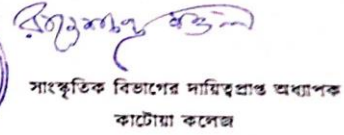 সাংস্কৃতিক বিভাগের দায়িত্বপ্রাপ্ত অধ্যাপক
কাটোয়া কলেজ